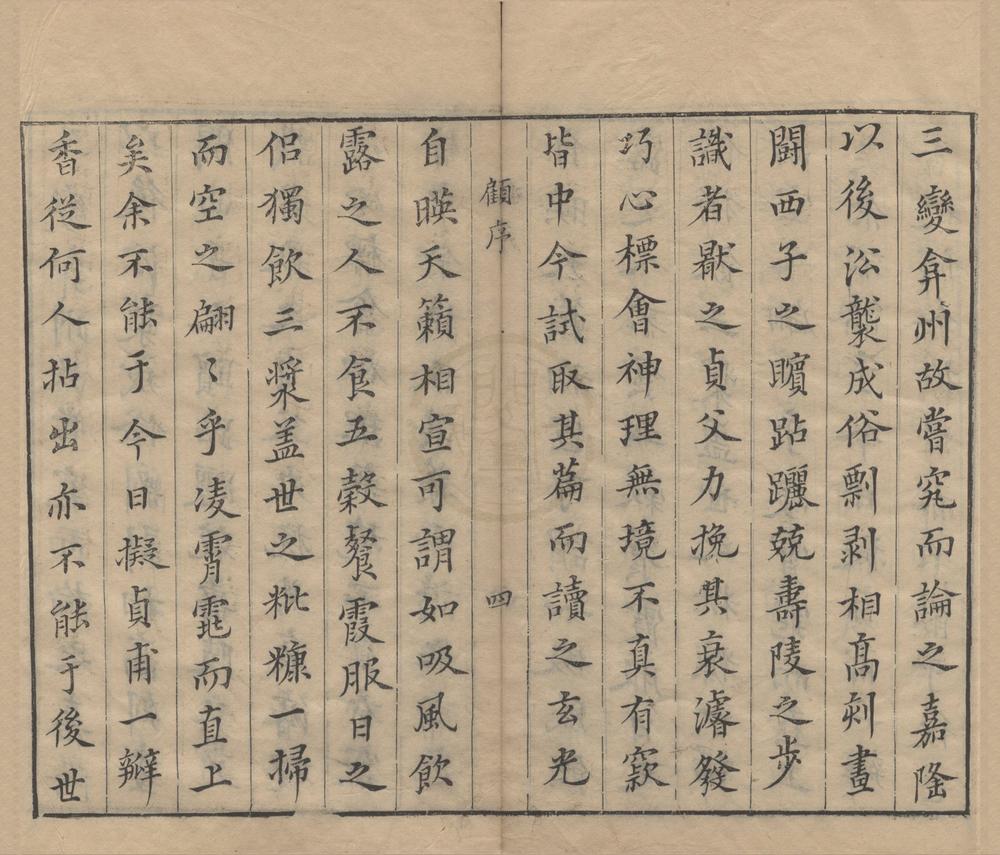 三變弇州故嘗究而論之嘉隆
以後沿襲成俗剽剥相髙刻畫
闘西子之矉跕躧兢壽陵之步
識者厭之貞父力挽其衰濬發
巧心標會神理無境不真有窾
皆中今試取其篇而讀之玄光
顧序
四
自暎天籟相宣可謂如吸風飲
露之人不食五穀餐霞服日之
侣獨飲三漿盖世之粃糠一掃
而空之翩〻乎凌霄雿而直上
矣余不能于今日擬貞甫一辦
香従何人拈出亦不能于後世